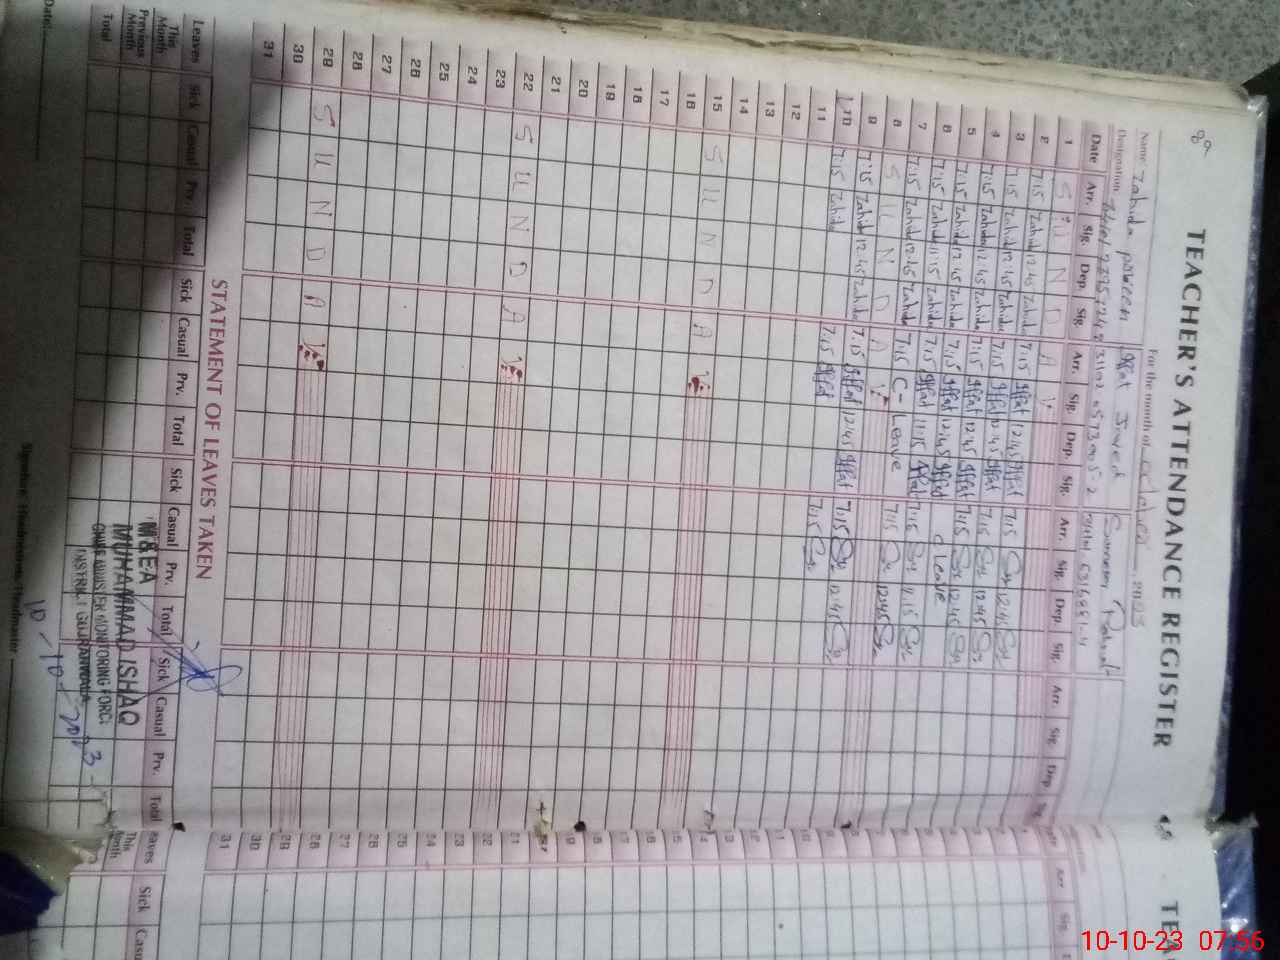 89
TEACHER'S ATTENDANCE REGISTER
For the month of October, 2023
Name Zahida Parveen Iffat Javed
Designation
Date Arr. Sig. Dep. Sig. Arr. Sig. Dep. Sig. Arr. Sig. Dep. Sig. Arr. Sig. Dep. Sig.
1 S U N D A Y
2 7:15 Zahida 12:45 Zahida 7:15 Iffat 12:45 Iffat 7:15 12:45
3 7:15 Zahida 12:45 Zahida 7:15 Iffat 12:45 Iffat 7:15 12:45
4 7:15 Zahida 12:45 Zahida 7:15 Iffat 12:45 Iffat 7:15 12:45
5 7:15 Zahida 12:45 Zahida 7:15 Iffat 12:45 Iffat C leave
6 7:15 Zahida 11:15 Zahida 7:15 Iffat 11:15 Iffat 7:15
7 7:15 Zahida 12:45 Zahida 7:15 C-Leave 7:15 12:45
8 S U N D A Y
9 7:15 Zahida 12:45 Zahida 7:15 Iffat 12:45 Iffat 7:15 12:45
10 7:15 Zahida 7:15 Iffat 7:15
11
12
13
14
15 S U N D A Y
16
17
18
19
20
21
22 S U N D A Y
23
24
25
26
27
28
29 S U N D A Y
30
31
STATEMENT OF LEAVES TAKEN
Leaves Sick Casual Prv. Total Sick Casual Prv. Total Sick Casual Prv. Total Sick Casual Prv. Total
This Month
Previous Month
Total
M&EA
MUHAMMAD ISHAQ
CHIEF MINISTER MONITORING FORCE
DISTRICT GUJRANWALA
10-10-2023
Date:
Signature Headmistress/Headmaster
TEA
Leaves Sick
This Month
10-10-23 07:56